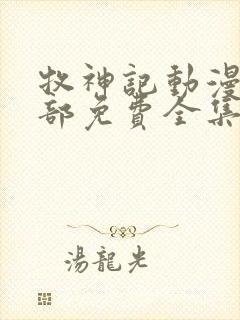 牧神記動漫
部免費全集
湯龍光